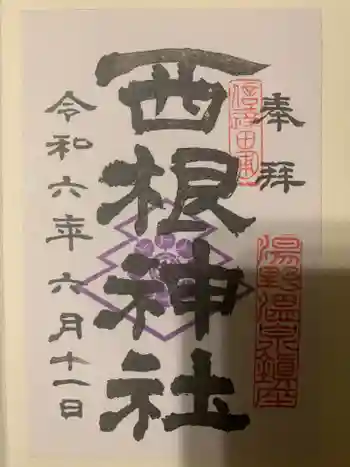 奉拝
西根神社
令和六年六月十一日
湯野温泉鎮座